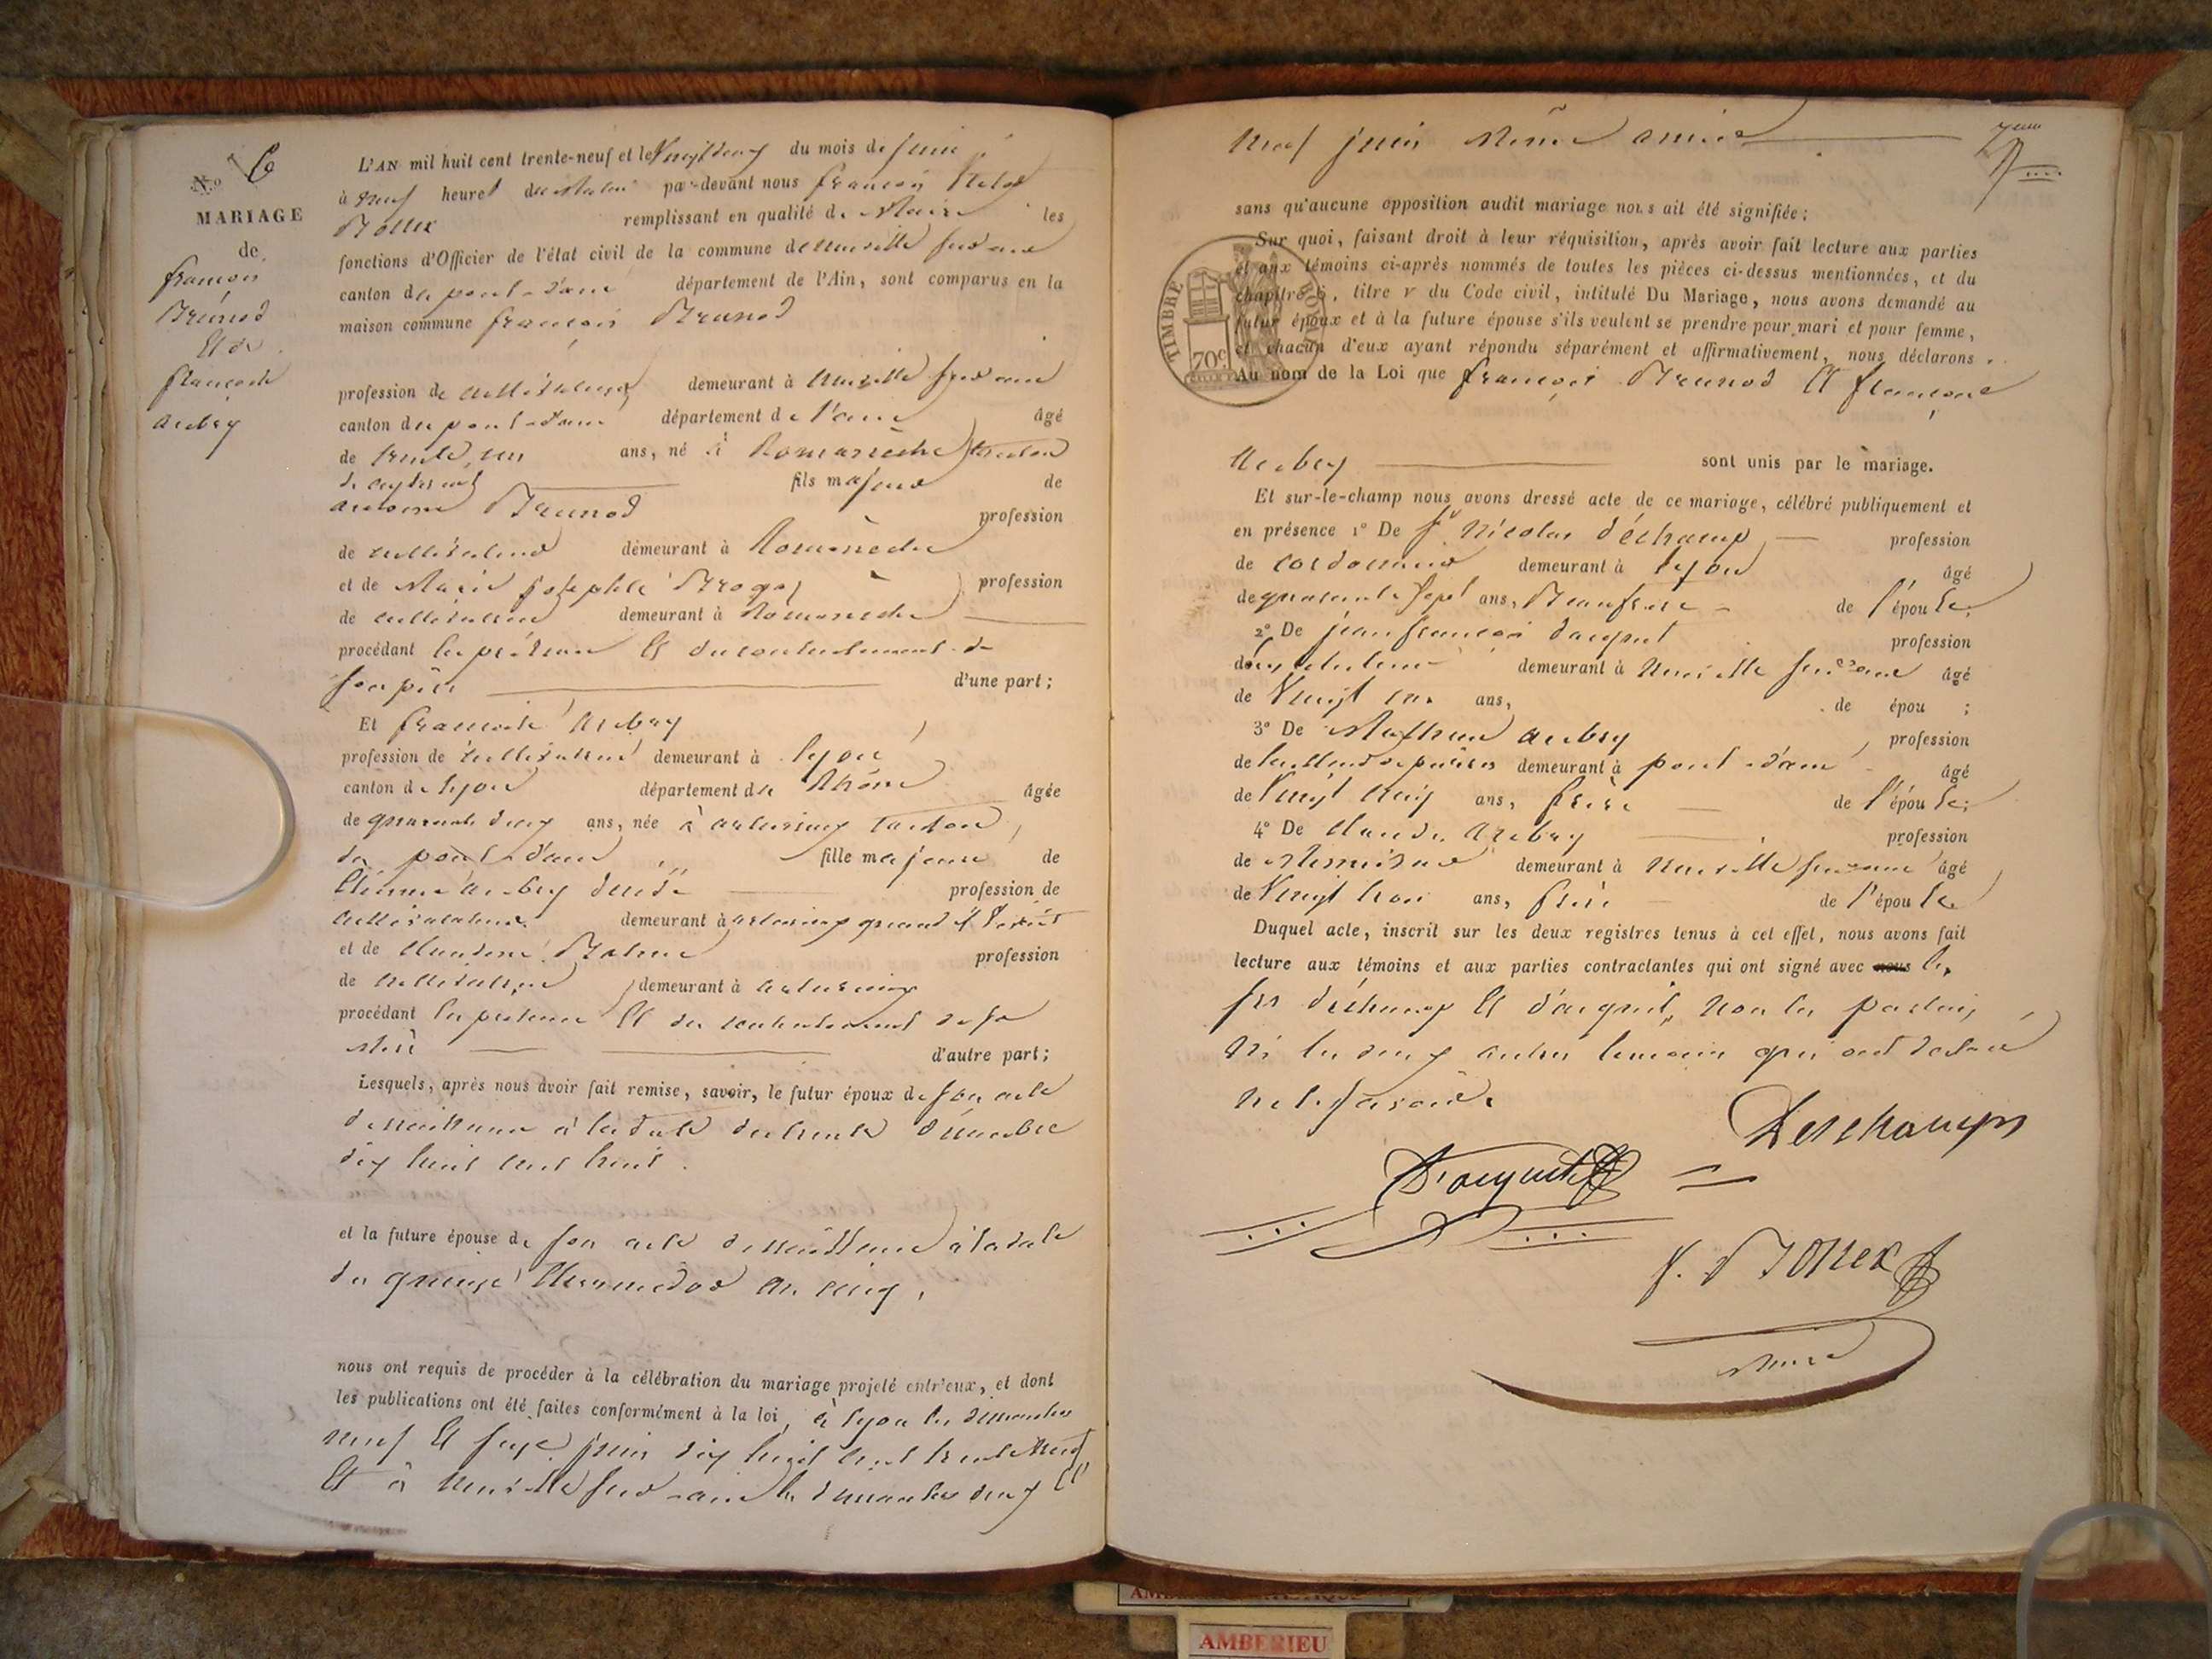 N.º 6
MARIAGE
de
françois
Brunod
Et de
françoise
aubry
L'AN mil huit cent trente-neuf et le Vingt deux du mois de juin
à neuf heures du Matin par-devant nous françois
remplissant en qualité de Maire les
fonctions d'Officier de l'état civil de la commune de neuville sur ain
canton de pont-d'ain département de l'Ain, sont comparus en la
maison commune françois Brunod
profession de cultivateur demeurant à neuville sur ain
canton de pont-d'ain département de l'ain âgé
de trente un ans, né à Romanèche canton
de ceyzeriat fils majeur de
antoine Brunod profession
de cultivateur demeurant à Romanèche
et de Marie josephte profession
de cultivateur demeurant à Romanèche
procédant les présence Et du contentement de
son père d'une part;
Et françoise Aubry
profession de cultivateur demeurant à lyon
canton de lyon département du Rhône âgée
de quarante deux ans, née à canton
de pont-d'ain fille majeure de
Etienne aubry profession de
cultivateur demeurant à
et de Claudine profession
de cultivateur demeurant à
procédant en présence Et du contentement de sa
Mère d'autre part;
Lesquels, après nous avoir fait remise, savoir, le futur époux de son acte
de naissance à la date du trente décembre
dix huit cent huit.
et la future épouse de son acte de naissance à la date
du quinze thermidor an cinq,
nous ont requis de procéder à la célébration du mariage projeté entr'eux, et dont
les publications ont été faites conformément à la loi, à lyon les dimanches
neuf Et seize juin dix huit cent trente neuf
Et à neuville sur-ain les dimanches deux Et
neuf juin même année
sans qu'aucune opposition audit mariage nous ait été signifiée;
Sur quoi, faisant droit à leur réquisition, après avoir fait lecture aux parties
et aux témoins ci-après nommés de toutes les pièces ci-dessus mentionnées, et du
chapitre 6, titre v du Code civil, intitulé Du Mariage, nous avons demandé au
futur époux et à la future épouse s'ils veulent se prendre pour mari et pour femme,
et chacun d'eux ayant répondu séparément et affirmativement, nous déclarons
Au nom de la Loi que françois Brunod Et françoise
TIMBRE ROYAL
70c
Aubry sont unis par le mariage.
Et sur-le-champ nous avons dressé acte de ce mariage, célébré publiquement et
en présence 1º De Sr Nicolas déchamp profession
de cordonnier demeurant à lyon âgé
de quarante sept ans, Beaufrere de l'épouse;
2º De jean françois profession
demeurant à Neuville sur ain âgé
de Vingt ans, de épou ;
3º De aubry profession
de demeurant à pont-d'ain âgé
de Vingt ans, frère de l'épouse;
4º De Claude Aubry profession
de Menuisier demeurant à neuville sur ain âgé
de Vingt trois ans, frère de l'épouse
Duquel acte, inscrit sur les deux registres tenus à cet effet, nous avons fait
lecture aux témoins et aux parties contractantes qui ont signé avec nous les
srs déchamp Et non les parties,
ni les deux autres temoins qui ont déclaré
ne le savoir.
Deschamps
Maire
AMBERIEU